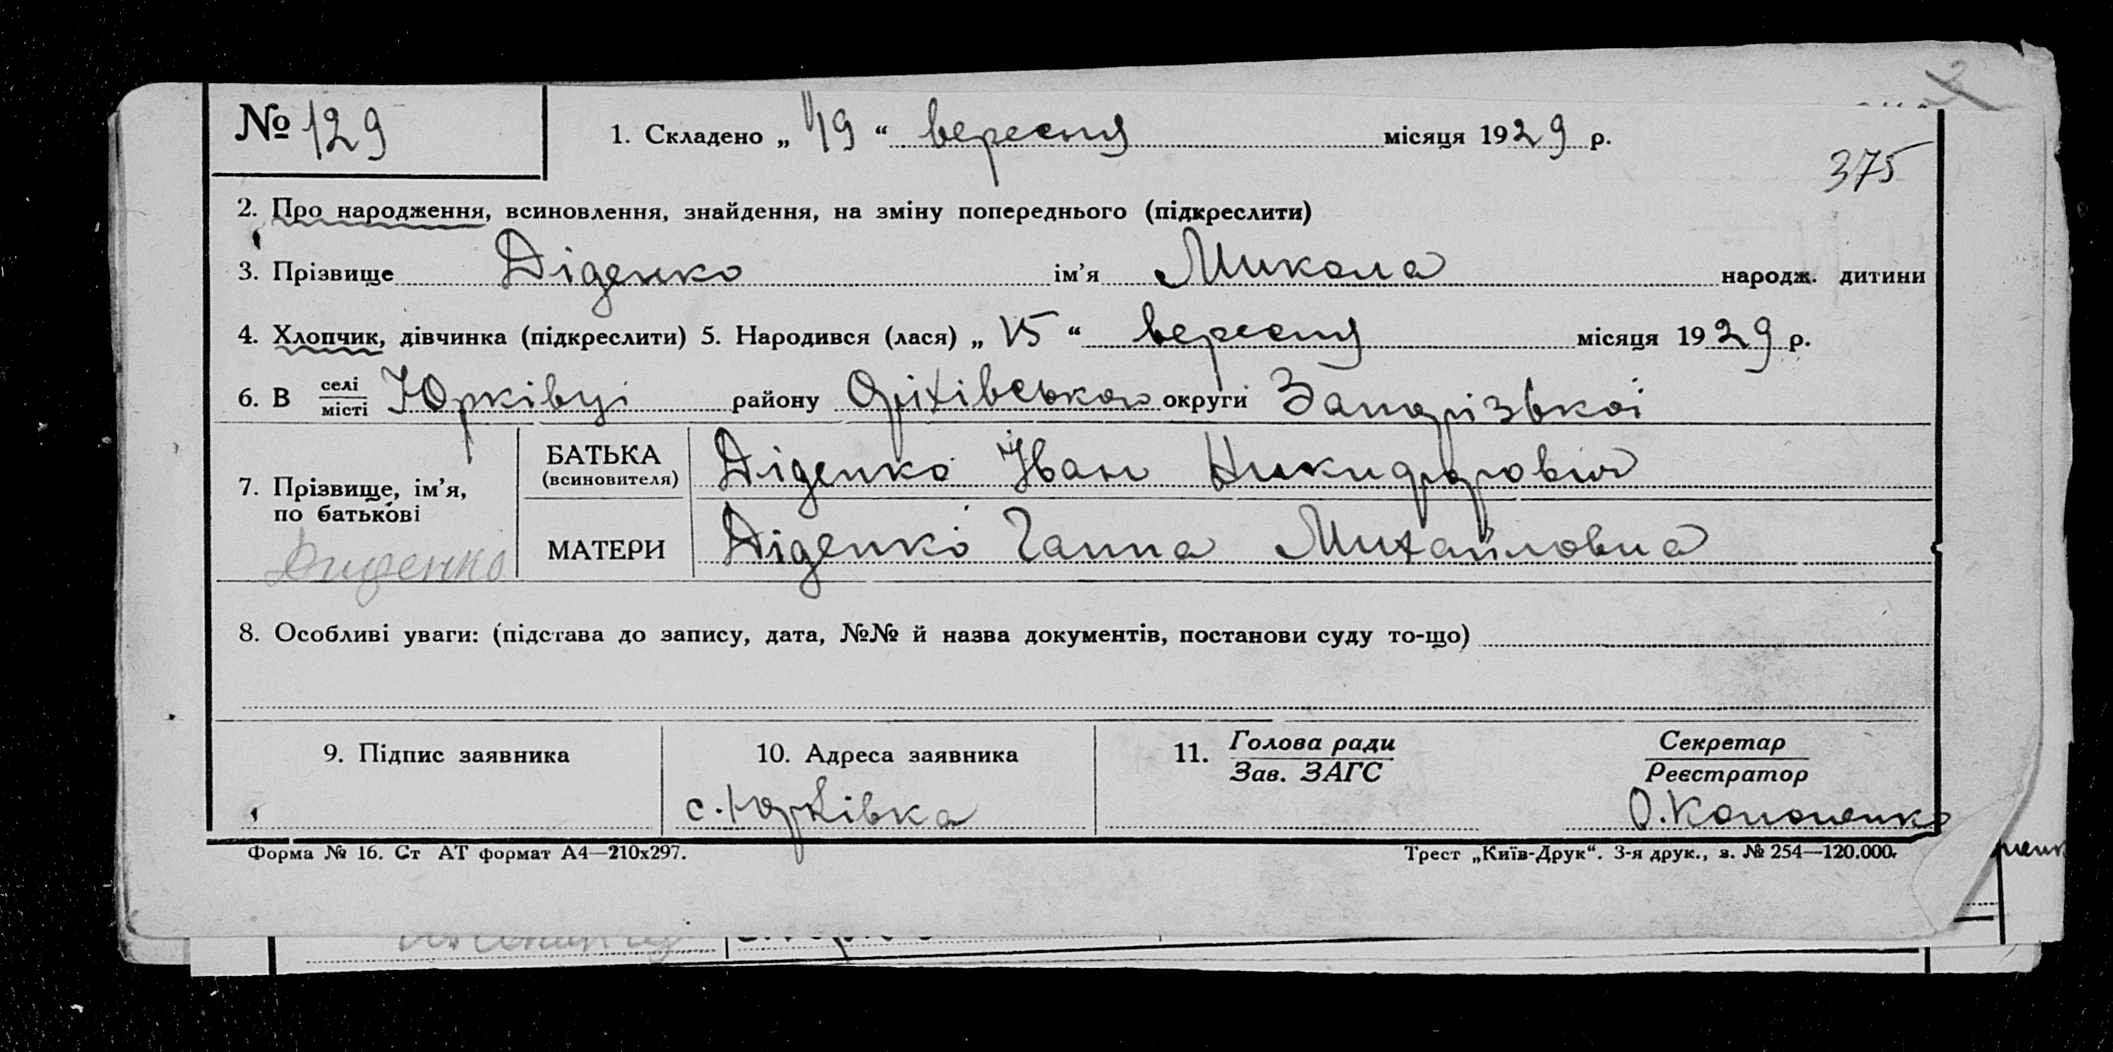 № 129
1. Складено „ 19 “ вересня місяця 1929 р.
375
2. Про народження, всиновлення, знайдення, на зміну попереднього (підкреслити)
3. Прізвище Діденко ім’я Микола народж. дитини
4. Хлопчик, дівчинка (підкреслити) 5. Народився (лася) „ 15 “ вересня місяця 1929 р.
6. В селі/місті Юрківці району Оріхівського округи Запорізької
7. Прізвище, ім’я, по батькові
БАТЬКА (всиновителя) Діденко Іван Никифорович
МАТЕРИ Діденко Ганна Михайловна
Диденко
8. Особливі уваги: (підстава до запису, дата, №№ й назва документів, постанови суду то-що)
9. Підпис заявника
10. Адреса заявника
11. Голова ради
Зав. ЗАГС
Секретар
Реєстратор
с. Юрківка
О. Кононенко
Форма № 16. Ст АТ формат А4—210х297.
Трест „Київ-Друк“. 3-я друк., з. № 254—120.000.